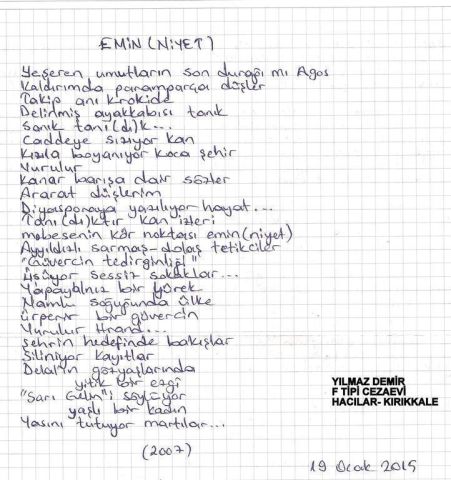 EMİN (NİYET)
Yeşeren umutların son durağı mı Agos
Kaldırımda paramparça düşler
Takip anı krokide
Delinmiş ayakkabısı tanık
Sanık tanı(dı)k...
Caddeye sızıyor kan
Kızıla boyanıyor koca şehir
Vurulur
Kanar barışa dair sözler
Ararat düşlerim
Diyasporaya yazılıyor hayat...
Tanı(dı)ktır kan izleri
mobesenin kör noktası emin(niyet)
Ayyıldızlı sarmaş-dolaş tetikciler
"Güvercin tedirginliği"
Üşüyor sessiz sokaklar...
Yapayalnız bir yürek
Namlu soğuğunda ülke
ürperir bir güvercin
Vurulur Hrand...
Şehrin hedefinde bakışlar
Siliniyor kayıtlar
Delal'ın gözyaşlarında
yitik bir ezgi
"Sarı Gelin"i söylüyor
yaşlı bir kadın
Yasını tutuyor martılar...
(2007)
YILMAZ DEMİR
F TİPİ CEZAEVİ
HACILAR- KIRIKKALE
19 Ocak 2015